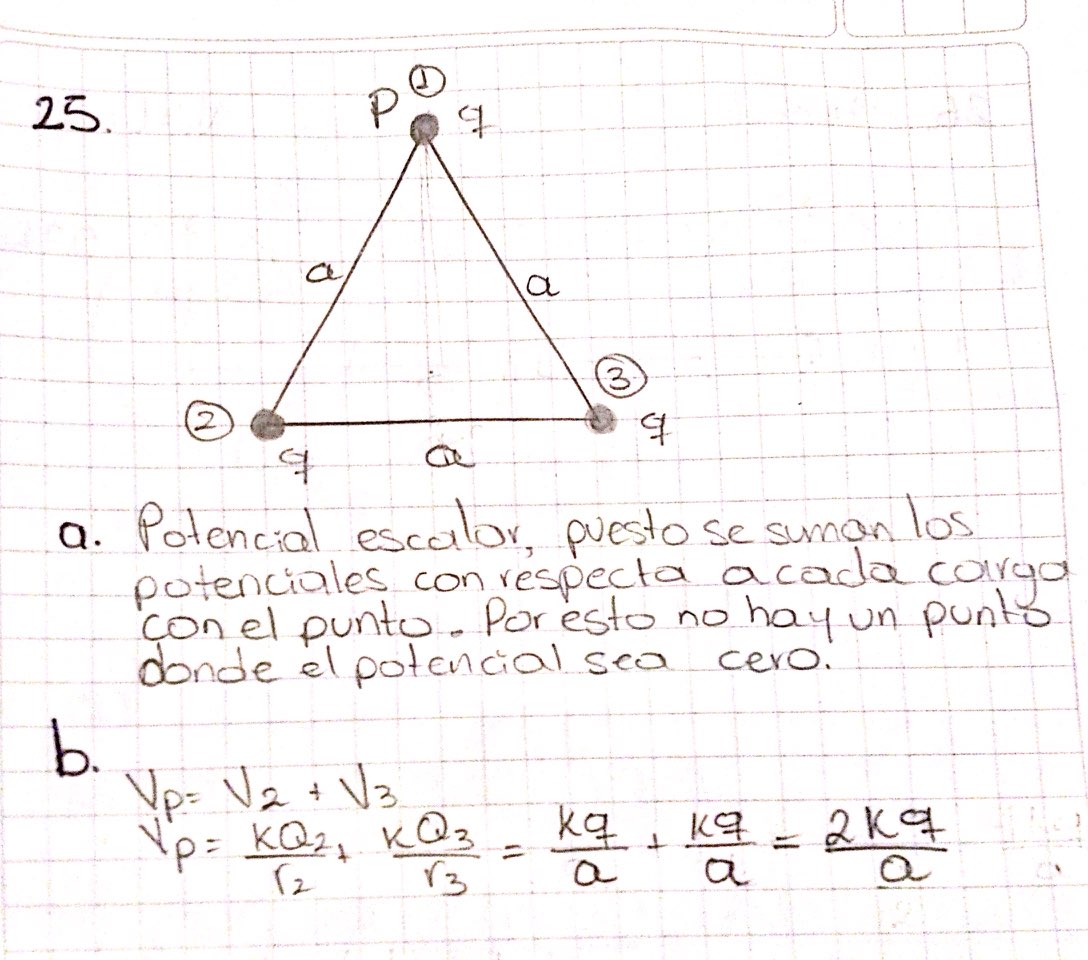 25.
P ① q
a
a
② ③
q a q
a. Potencial escalar, puesto se suman los
potenciales con respecta a cada carga
con el punto. Por esto no hay un punto
donde el potencial sea cero.
b.
Vp= V2 + V3
Vp= kQ2/r2 + kQ3/r3 = kq/a + kq/a = 2kq/a